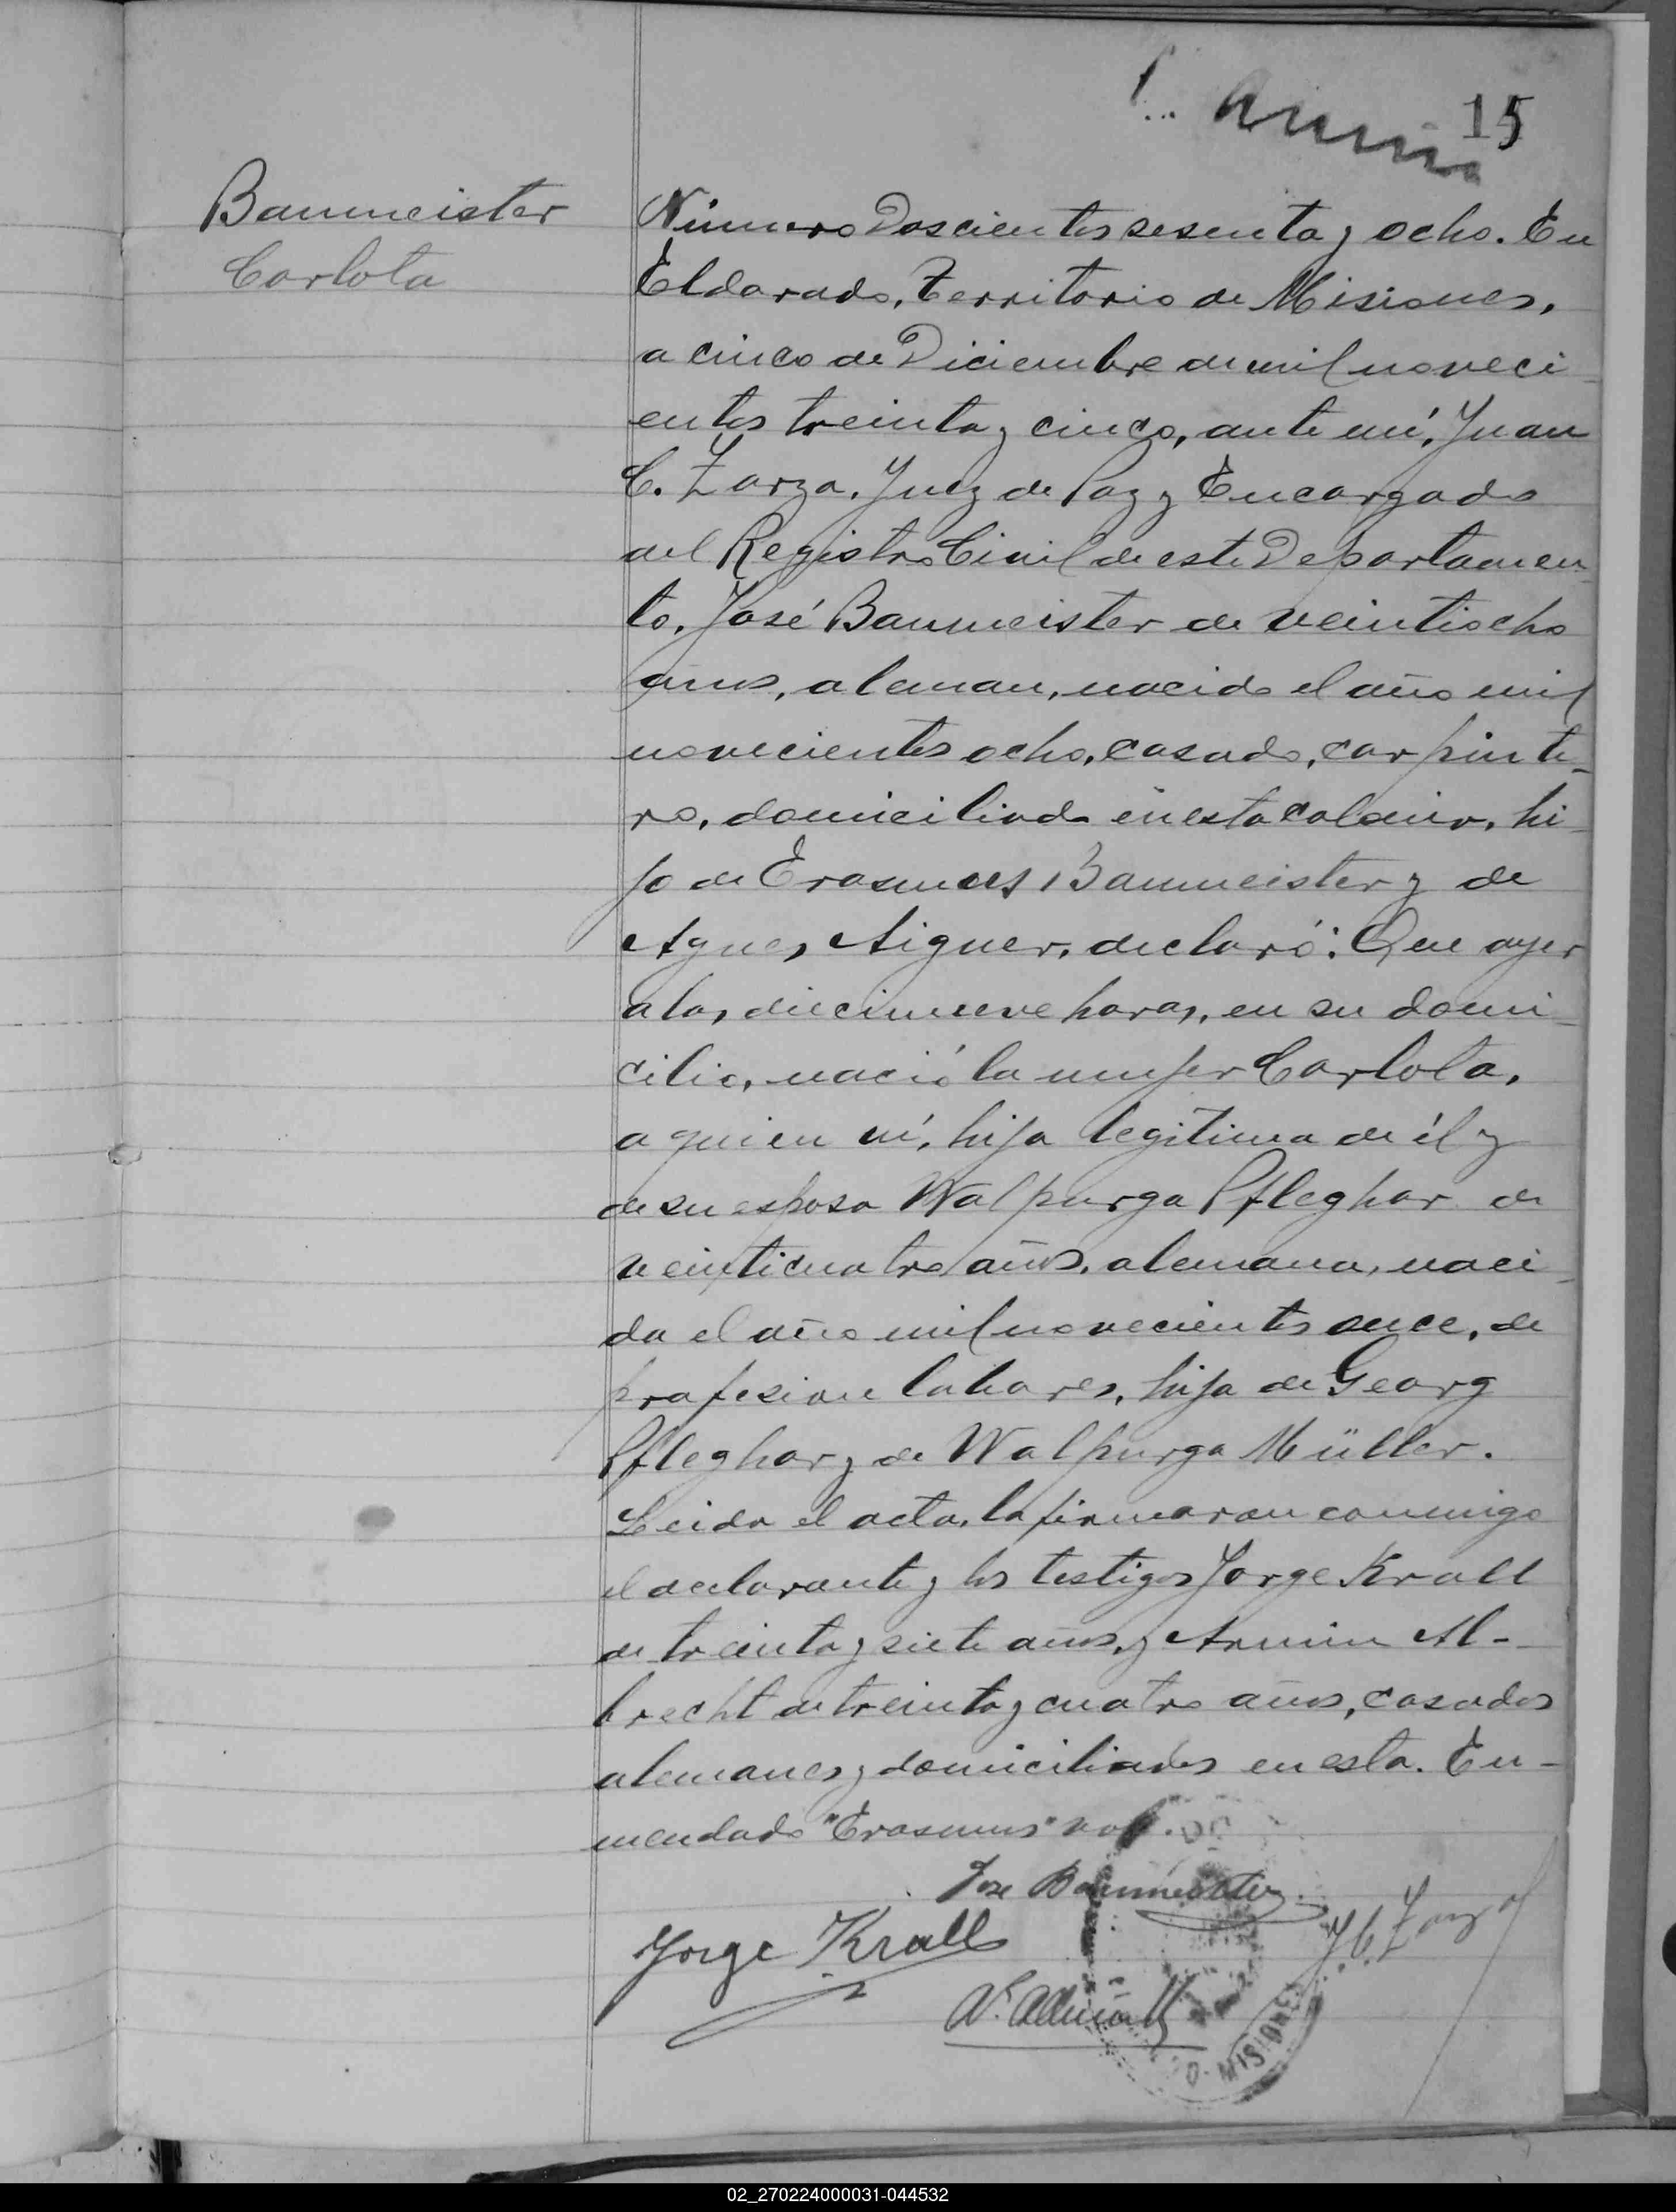 15
Baumeister
Carlota
Número Doscientos sesenta y ocho. En
Eldorado, Territorio de Misiones,
a cinco de Diciembre de mil noveci-
entos treinta y cinco, ante mí, Juan
C. Zarza, Juez de Paz y Encargado
del Registro Civil de este Departamen-
to, José Baumeister de veintiocho
años, aleman, nacido el año mil
novecientos ocho, casado, carpinte-
ro, domiciliado en esta colonia, hi-
jo de Erasmus Baumeister y de
Agnes Aigner, declaró: Que ayer
a las diecinueve horas, en su domi-
cilio, nació la mujer Carlota,
a quien ví, hija legítima de él y
de su esposa Walpurga Pfleghar de
veinticuatro años, alemana, naci-
da el año mil novecientos once, de
profesion labores, hija de Georg
Pfleghar y de Walpurga Müller.
Leida el acta, la firmaron conmigo
el declarante y los testigos Jorge Krall
de treinta y siete años, y Armin Al-
brecht de treinta y cuatro años, casados
alemanes y domiciliados en esta. En-
mendado "Erasmus" vale.
Jose Baumeister
Jorge Krall
J.C. Zarza
MISIONES
02_270224000031-044532